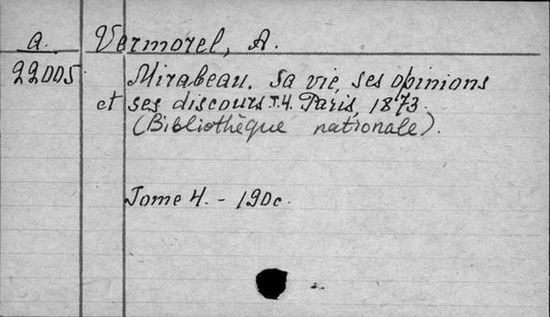 a. Vermorel, A.
22005 Mirabeau. Sa vie, ses opinions
et ses discours T.4. Paris, 1873.
(Bibliothèque nationale).
Tome 4. - 190c.